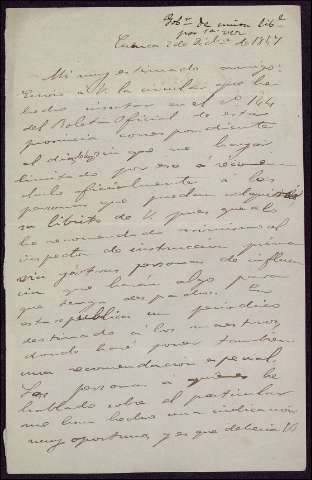 de union lib.l
Cuenca 2 de Dbre de 1847
Mi muy estimado amigo:
Envio á V. la circular que he
hecho insertar en el nº 144
del Boletin Oficial de esta
provincia correspondiente
al dia que no hayan
limitado por eso á recomen
darlo oficialmente á los
personas que puedan
su librito de V. pues que lo
he recomendado asimismo al
inspector de instruccion prima
ria y á otras personas de influen
cia que harán algo
que tenga dos padres. En
esta se publica un periódico
destinado á los maestros,
donde haré poner tambien
una recomendacion especial.
Las personas á quienes he
hablado sobre el particular
me han hecho una indicación
muy oportuna y es que deberia V.